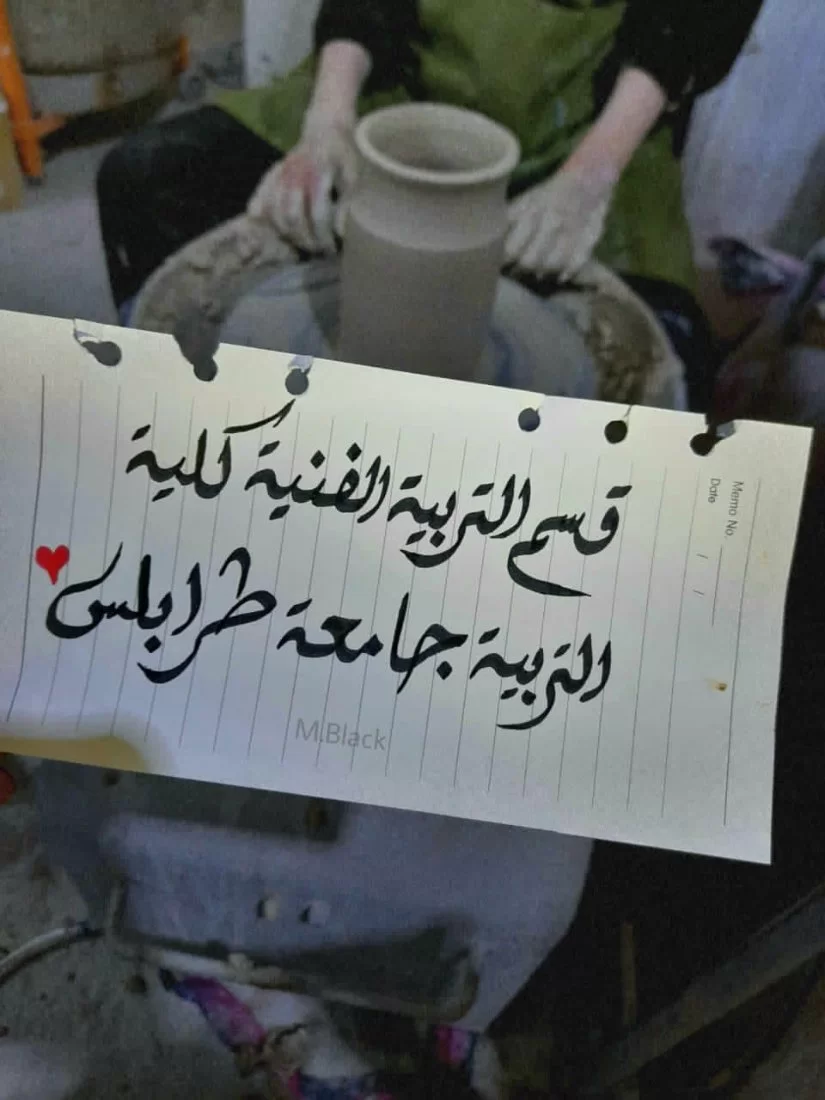 قسم التربية الفنية كلية
التربية جامعة طرابلس
M.Black
Memo No.
Date / /